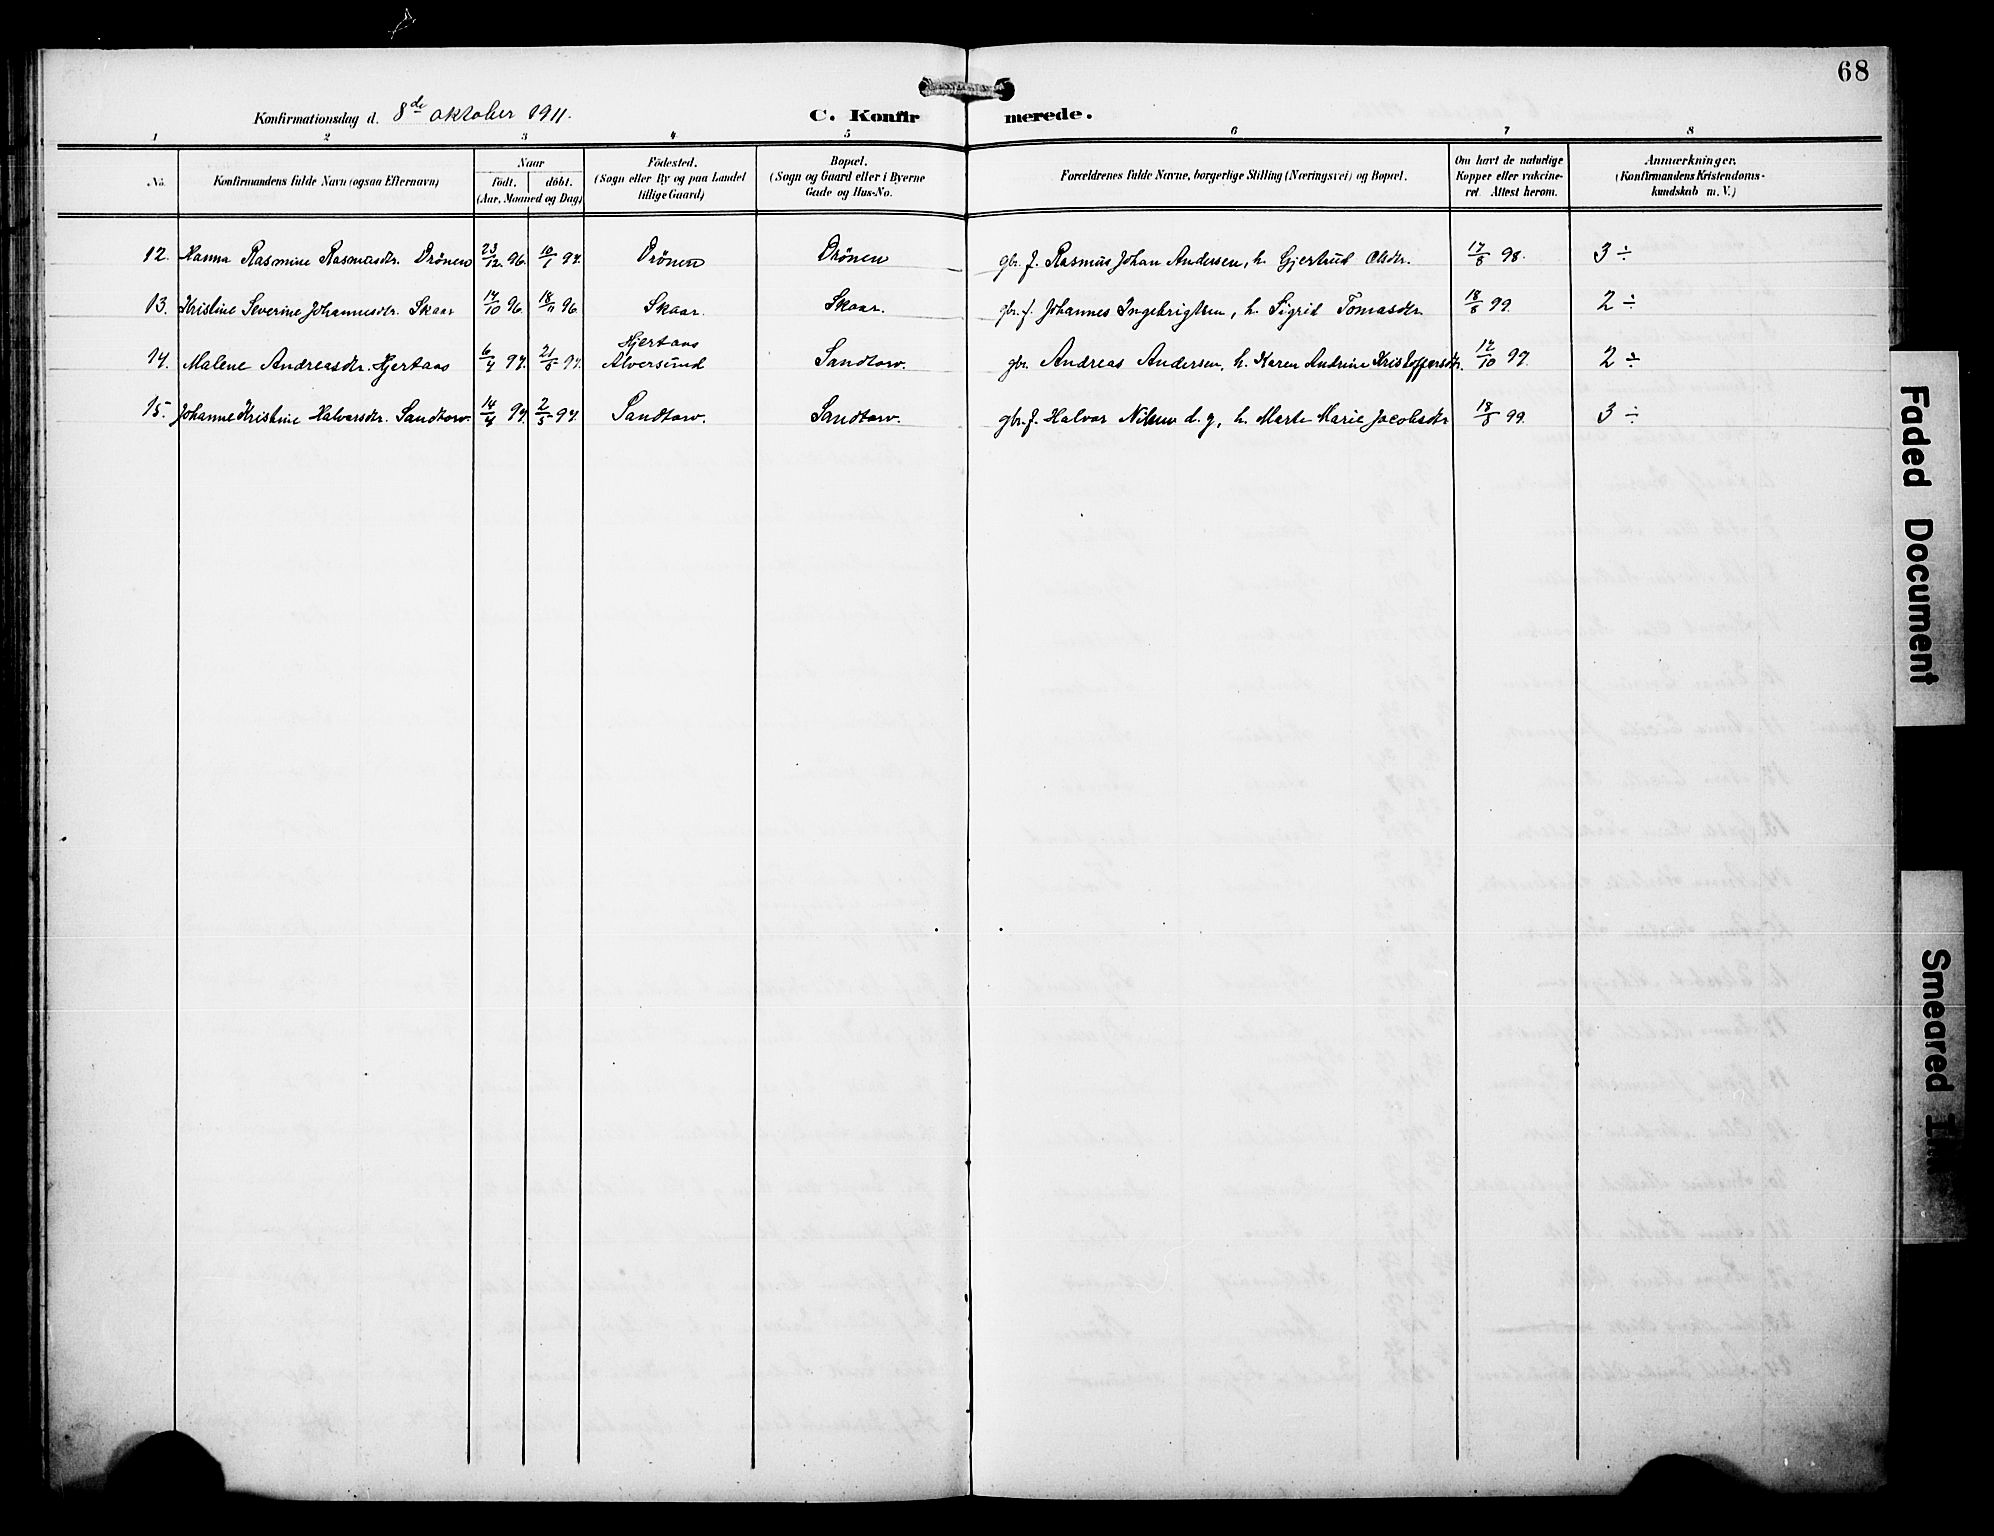 68
Konfirmationsdag d. 8de oktober 1911.
C. Konfirmerede.
1 2 3 4 5 6 7 8
No.
Konfirmandens fulde Navn (ogsaa Efternavn)
Naar
födt. döbt.
(Aar, Maaned og Dag)
Födested.
(Sogn eller By og paa Landet
tillige Gaard)
Bopæl.
(Sogn og Gaard eller i Byerne
Gade og Hus-No.
Forældrenes fulde Navne, borgerlige Stilling (Næringsvei) og Bopæl.
Om havt de naturlige
Kopper eller vakcine-
ret. Attest herom.
Anmærkninger.
(Konfirmandens Kristendoms-
kundskab m. V.)
12. Hanna Rasmine Rasmusdtr. Drönen 23/12 96. 10/1 97. Drönen Drönen gbr. f. Rasmus Johan Andersen, h. Gjertrud Olsdtr. 17/8 98. 3 ÷
13. Kristine Severine Johannesdtr. Skaar 14/10 96. 18/11 96. Skaar. Skaar. gbr. f. Johannes Ingebrigtsen, h. Sigrid Tomasdtr. 18/8 99. 2 ÷
Hjertaas
14. Malene Andreasdtr. Hjertaas 6/4 97. 21/5 97. Alversund Sandtorv. gbr. Andreas Andersen, h. Karen Andrine Kristoffersdtr. 12/10 97. 2 ÷
15. Johanne Kristine Halvorsdtr. Sandtorv. 14/4 97. 2/5 97. Sandtorv. Sandtorv. gbr. f. Halvor Nilsen d. y, h. Marte Marie Jacobsdtr 18/8 99. 3 ÷
Faded Document
Smeared